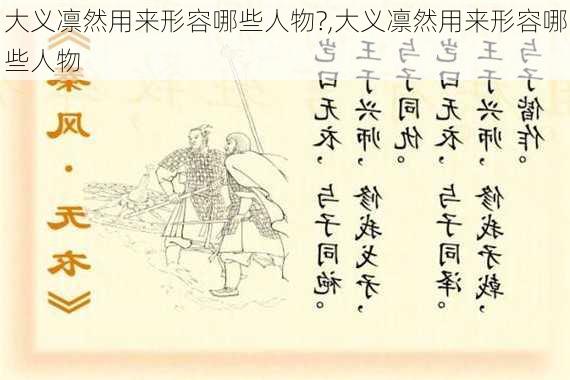 大义凛然用来形容哪些人物?,大义凛然用来形容哪
些人物
秦风·无衣》
岂曰无衣，与子同袍。
王于兴师，修我戈矛，
与子同仇。
岂曰无衣，与子同泽。
王于兴师，修我矛戟，
与子偕作。